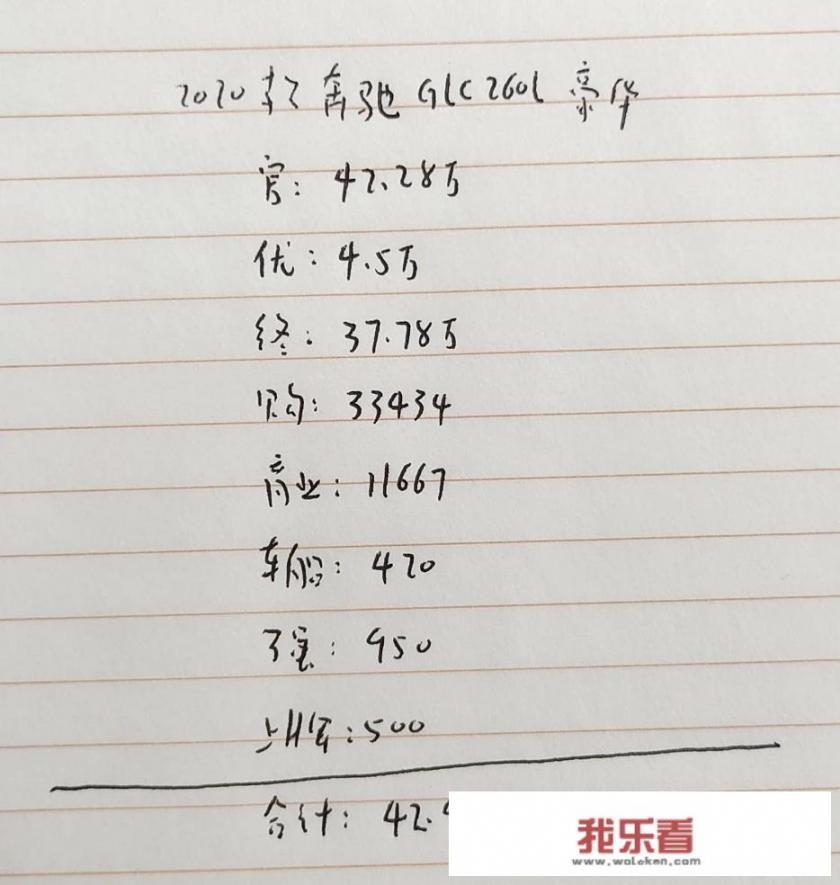 2020款奔驰GLC260L豪华
官：42.28万
优：4.5万
终：37.78万
购：33434
商业：11667
车船：420
交强：950
上牌：500
合计：42.
我乐看
www.woleken.com